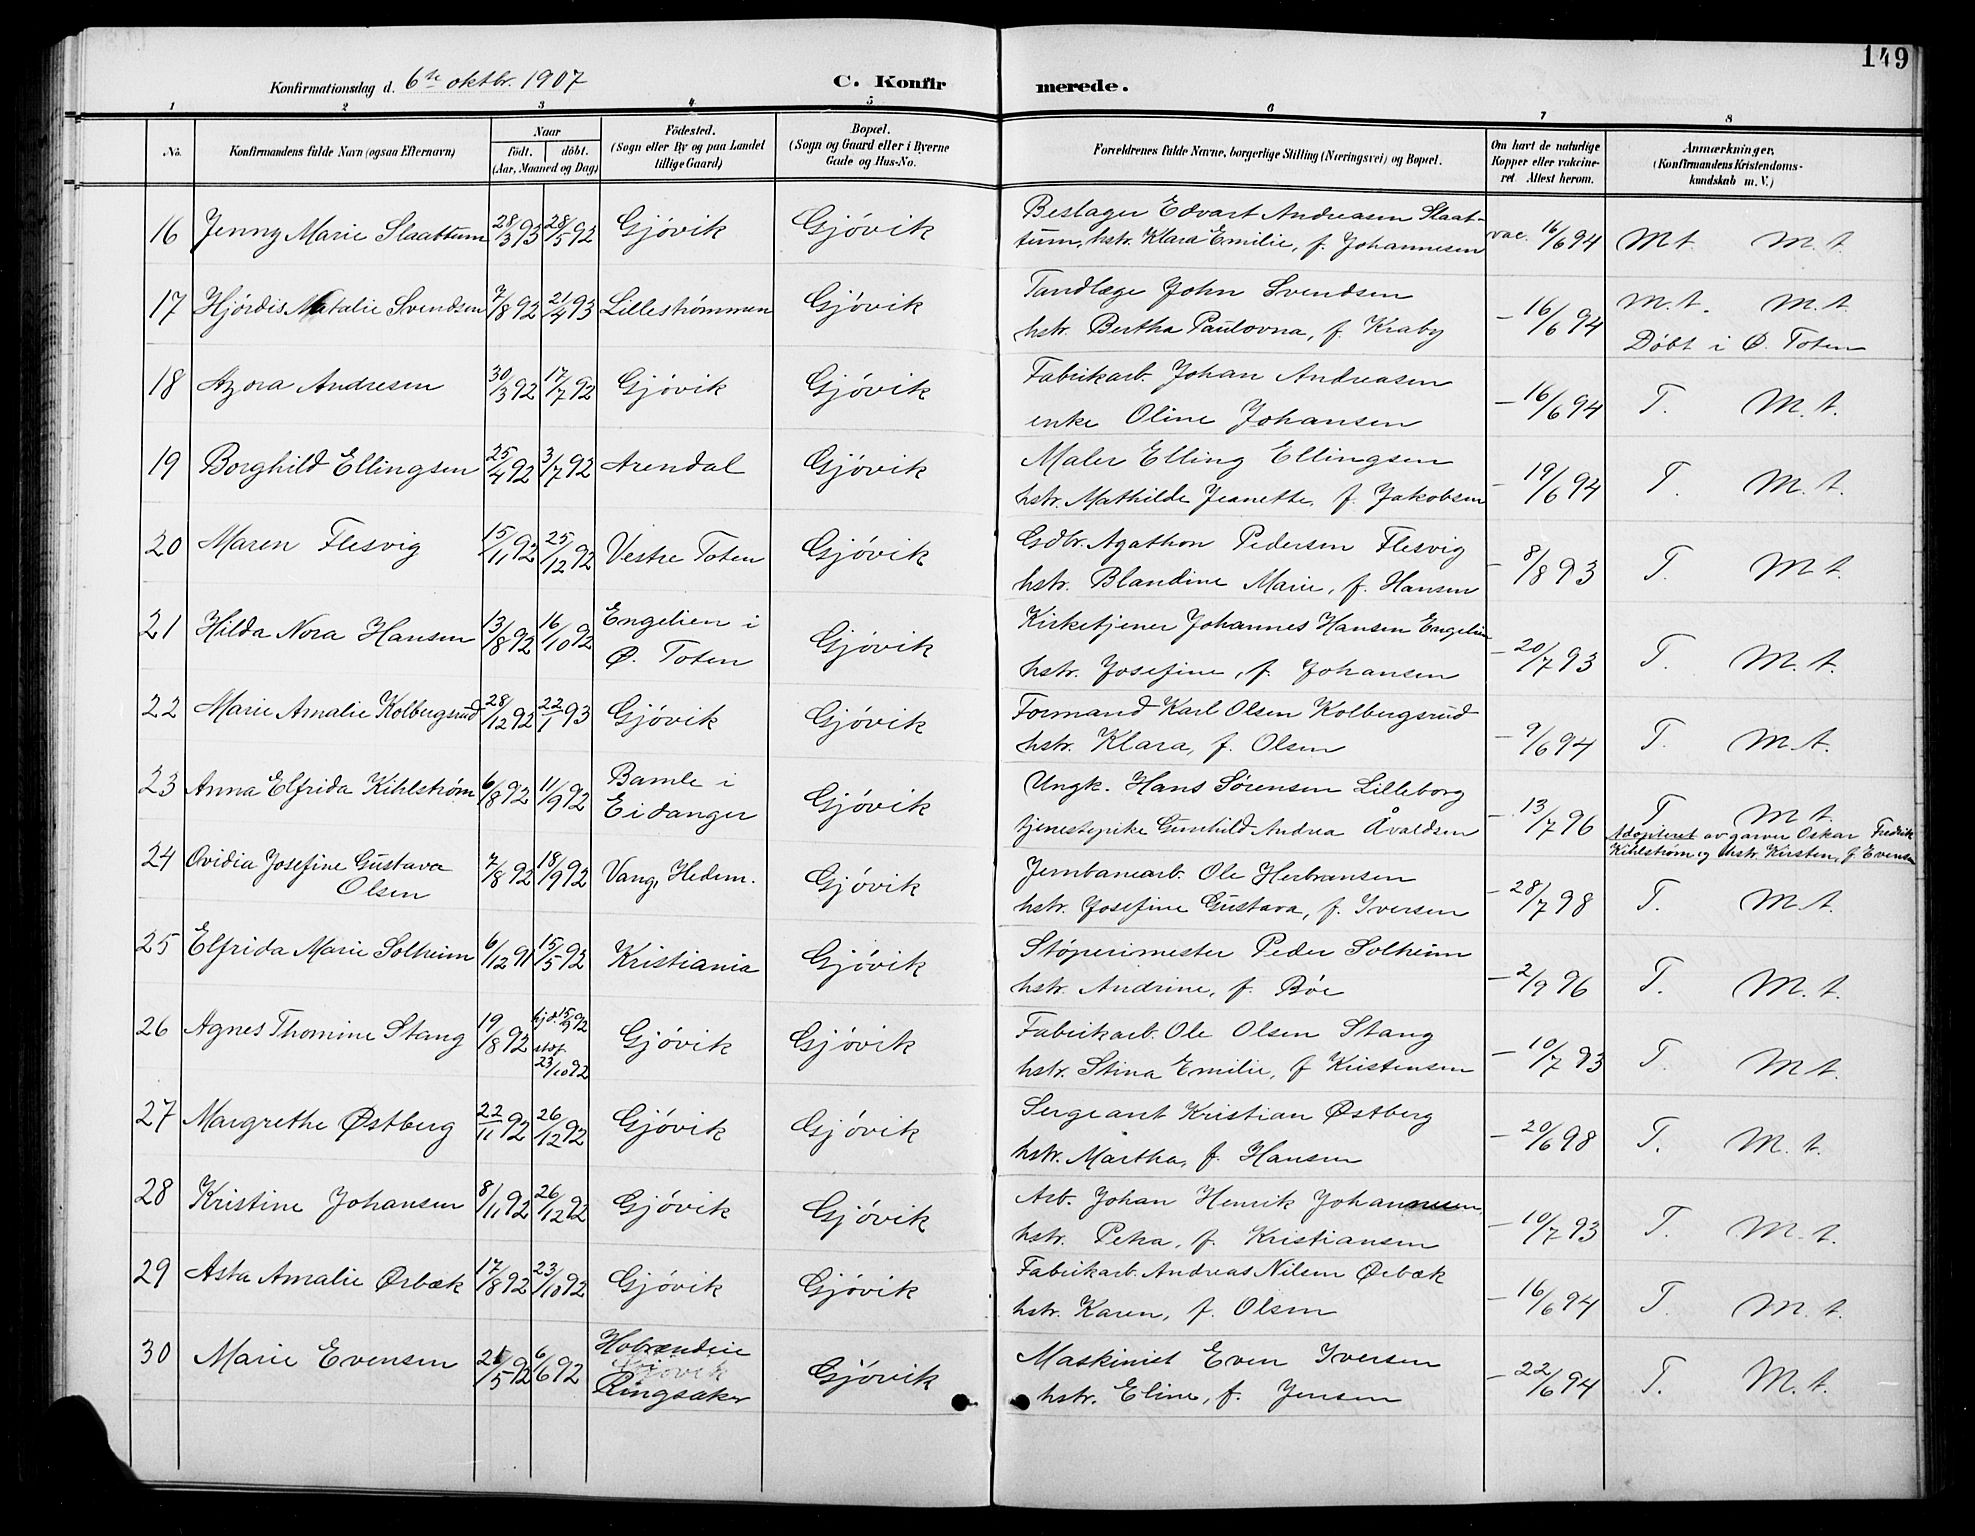 149
Konfirmationsdag d. 6te oktbr. 1907
C. Konfirmerede.
1 2 3 4 5 6 7 8
No. Konfirmandens fulde Navn (ogsaa Efternavn) Naar Födt. döbt. (Aar, Maaned og Dag) Födested. (Sogn eller By og paa Landet tillige Gaard) Bopæl. (Sogn og Gaard eller i Byerne Gade og Hus-No. Forældrenes fulde Navne, borgerlige Stilling (Næringsvei) og Bopæl. Om havt de naturlige Kopper eller vakcineret Attest herom. Anmærkninger, (Konfirmandens Kristendomskundskab m. V.)
16 Jenny Marie Slaattum 28/3 93 28/5 92 Gjövik Gjövik Beslager Edvart Andreasen Slaat-
tum, hstr. Klara Emilie, f. Johannesen vac. 16/6 94 M t. M. t.
17 Hjördis Natalie Svendsen 7/8 92 21/4 93 Lillestrømmen Gjövik Tandlæge John Svendsen
hstr. Bertha Paulovna, f. Kraby – 16/6 94 M. t. M. t.
Döbt i Ø. Toten
18 Azora Andresen 30/3 92 17/7 92 Gjövik Gjövik Fabrikarb. Johan Andreasen
enke Oline Johansen – 16/6 94 T. M. t.
19 Borghild Ellingsen 25/4 92 3/7 92 Arendal Gjövik Maler Elling Ellingsen
hstr. Mathilde Jeanette, f. Jakobsen – 19/6 94 T. M. t.
20 Maren Flesvig 15/11 92 25/12 92 Vestre Toten Gjövik Gdbr. Agathon Pedersen Flesvig
hstr. Blandine Marie, f. Hansen – 8/8 93 T. M t.
21 Hilda Nora Hansen 13/8 92 16/10 92 Engelien i
Ø. Toten Gjövik Kirketjener Johannes Hansen Engelien
hstr. Josefine, f. Johansen – 20/7 93 T. M. t.
22 Marie Amalie Kolbergsrud 28/12 92 22/1 93 Gjövik Gjövik Formand Karl Olsen Kolbergsrud
hstr. Klara, f. Olsen – 9/6 94 T. M. t.
23 Anna Elfrida Kihlstrøm 6/8 92 11/9 92 Bamle i
Eidanger Gjövik Ungk. Hans Sørensen Lilleborg
tjenestepike Gunhild Andrea Åvaldsen – 13/7 96 T M t.
Adopteret av garver Oskar Fredrik
Kihlstrøm og hstr. Kirsten, f. Evensen
24 Ovidia Josefine Gustava
Olsen 7/8 92 18/9 92 Vang, Hedem. Gjövik Jernbanearb. Ole Herbransen
hstr. Josefine Gustava, f. Iversen – 28/7 98 T. M. t.
25 Elfrida Marie Solheim 6/12 91 15/5 92 Kristiania Gjövik Støperimester Peder Solheim
hstr. Andrine, f. Bøe – 2/9 96 T. M. t.
26 Agnes Thomine Stang 19/8 92 hjd. 15/9 92
stdf
23/10 92 Gjövik Gjövik Fabrikarb. Ole Olsen Stang
hstr. Stina Emilie, f Kristensen – 10/7 93 T. M t.
27 Margrethe Østberg 22/11 92 26/12 92 Gjövik Gjövik Sergeant Kristian Østberg
hstr. Martha, f. Hansen – 20/6 98 T. M. t.
28 Kristine Johansen 8/11 92 26/12 92 Gjövik Gjövik Arb. Johan Henrik Johannesen,
hstr. Petra, f. Kristiansen – 10/7 93 T. M. t.
29 Asta Amalie Ørbæk 17/8 92 23/10 92 Gjövik Gjövik Fabrikarb. Andreas Nilsen Ørbæk
hstr. Karen, f. Olsen – 16/6 94 T. M. t.
30 Marie Evensen 21/5 92 6/6 92 Hobrændeie
Gjövik
Ringsaker Gjövik Maskinist Even Iversen
hstr. Eline, f. Jensen – 22/6 94 T. M. t.